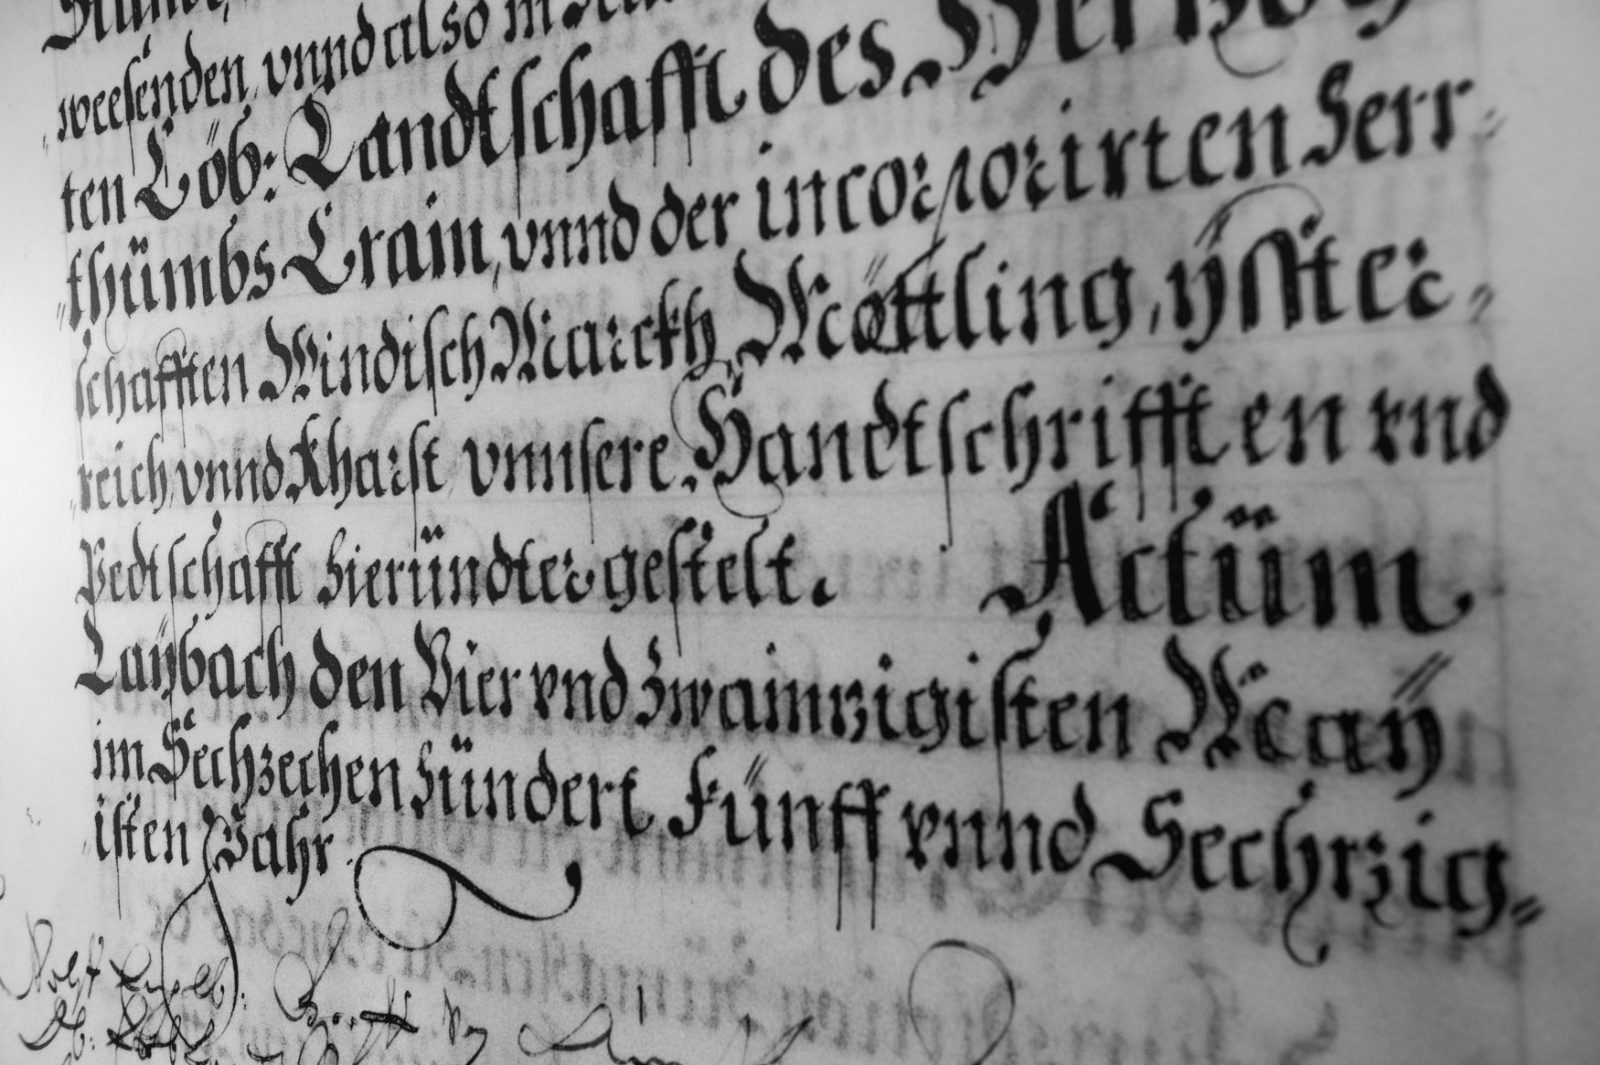 weesenden, vnnd also in
ten Löb: Landtschafft des Hertzog
thümbs Crain, vnnd der incorporirten Herr-
schafften Windisch Marckh, Möttling, ÿsster-
reich, vnnd Kharst vnnsere Handtschrifften vnd
Pedtschafft hieründter gestelt. Actüm
Laÿbach den Vier vnd Zwainzigisten Maÿ
im Sechzechen hündert Fünff vnnd Sechzig-
isten Jahr